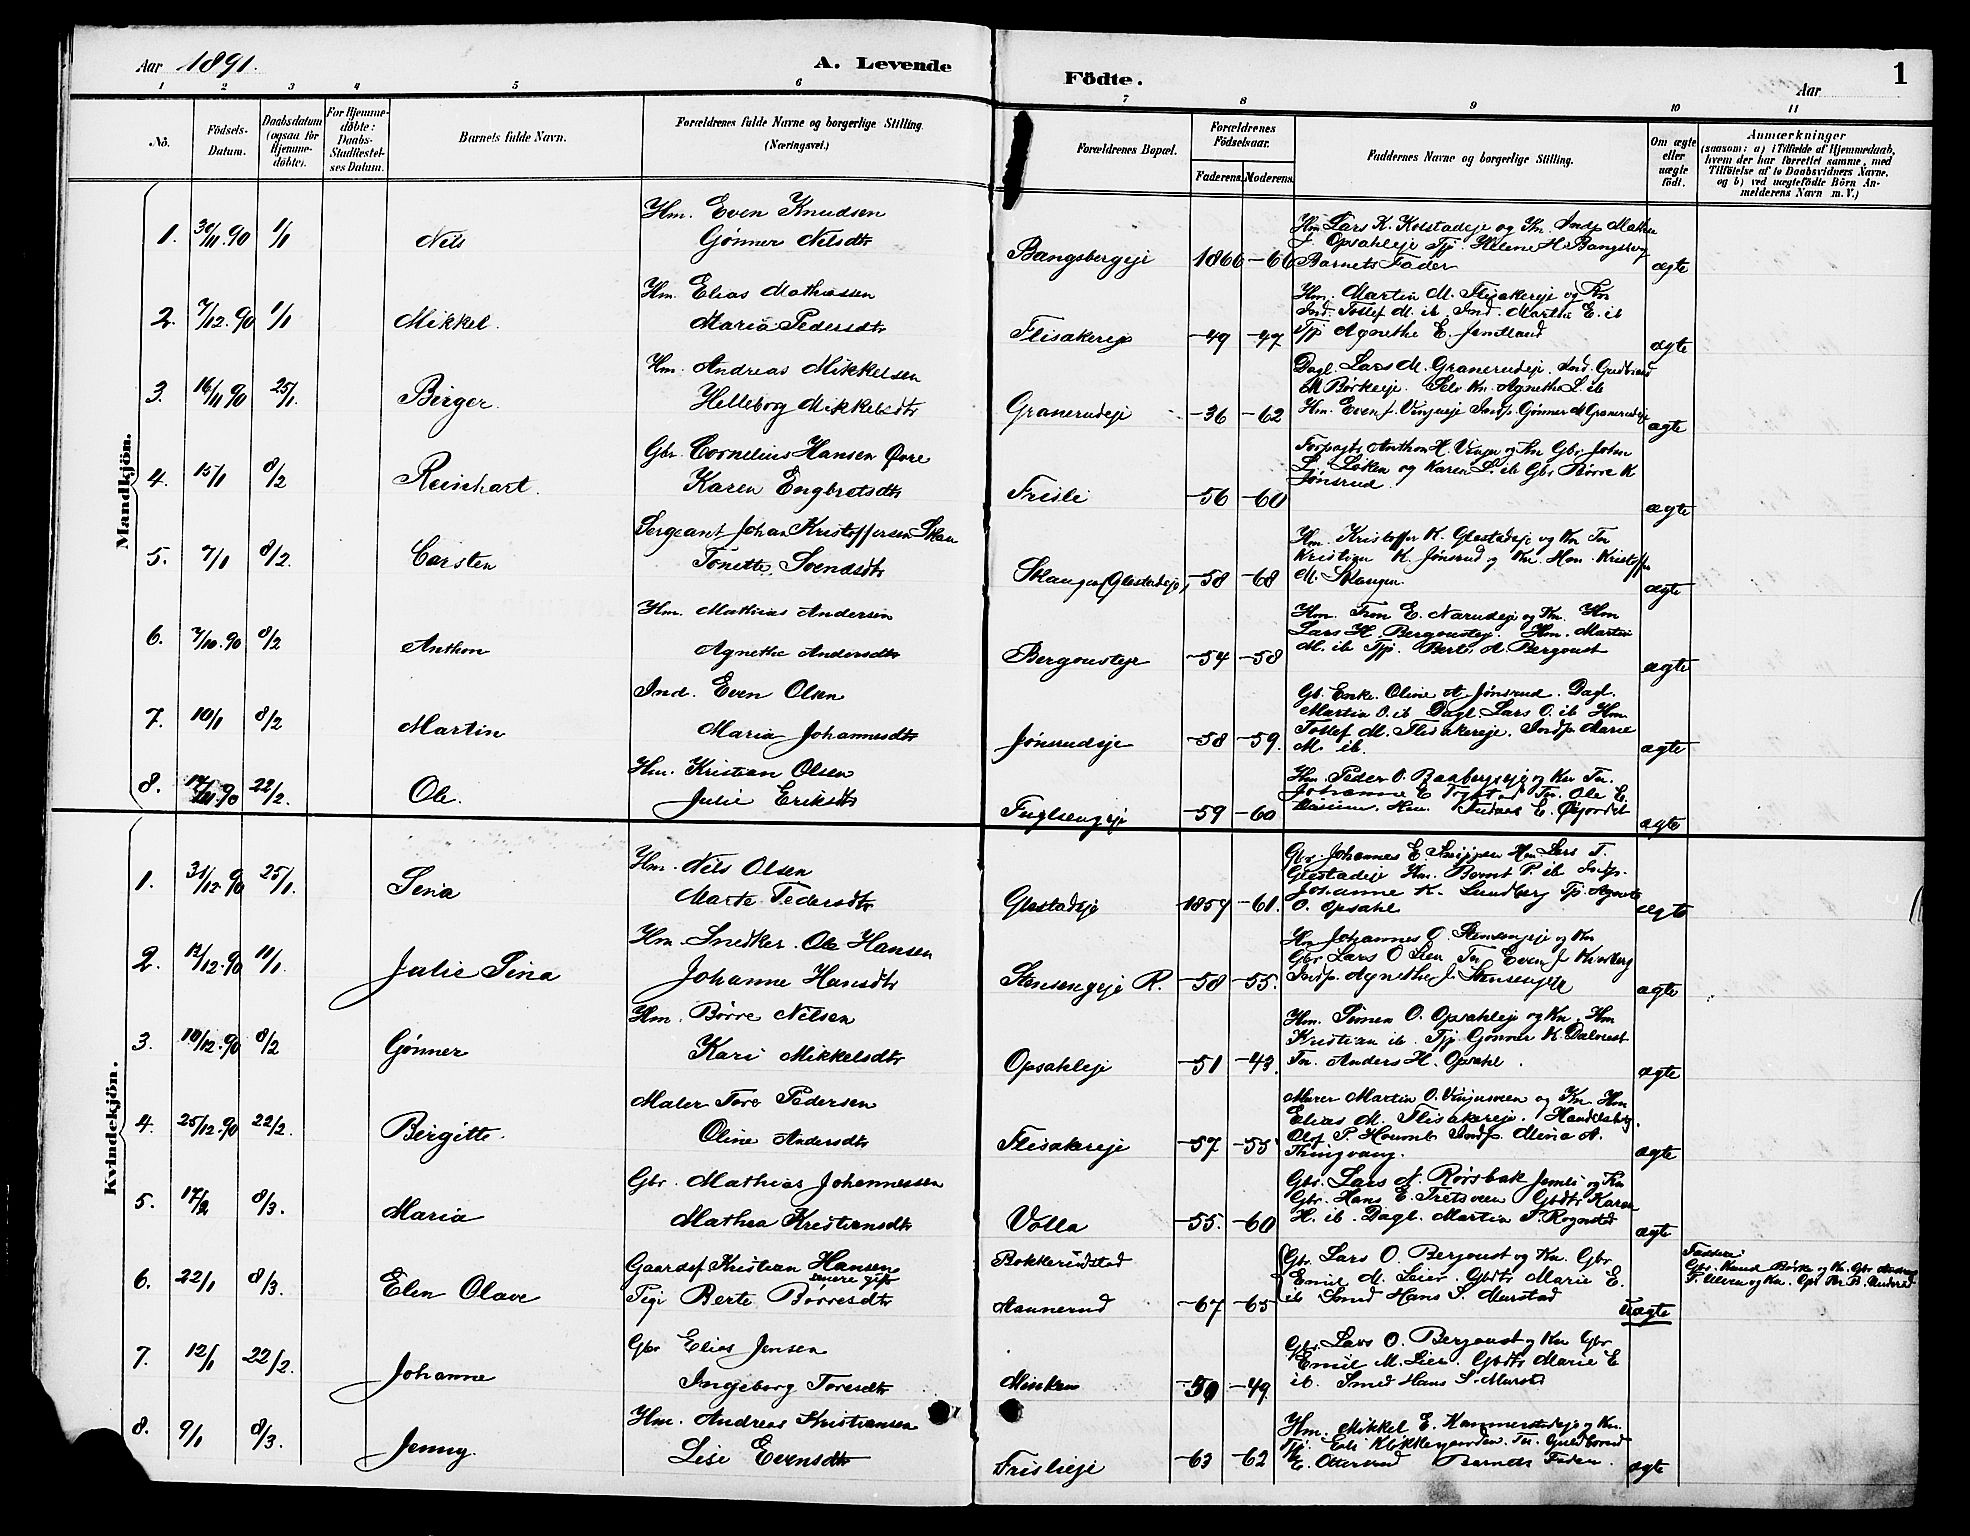 Aar 1891. A. Levende Födte. Aar 1
1 2 3 4 5 6 7 8 9 10 11
No. Födsels-Datum. Daabsdatum (ogsaa for Hjemme-döbte). For Hjemme-döbte: Daabs-Stadfæstel-ses Datum. Barnets fulde Navn. Forældrenes fulde Navne og borgerlige Stilling. (Næringsvei.) Forældrenes Bopæl. Forældrenes Födselsaar. Faderens. Moderens. Faddernes Navne og borgerlige Stilling. Om ægte eller uægte födt. Anmærkninger (saasom: a) i Tilfælde af Hjemmedaab, hvem der har forrettet samme, med Tilföielse af to Daabsvidners Navne, og b) ved uægtefödte Börn An-melderens Navn m.V.)
Mandkjön.
1. 30/11.90 1/1 Nels Hm. Even Knudsen
Gønner Nelsdtr Bangsbergeje 1866 -66 Hm Lars K. Kolstadeje og Kn. Indp Mathea
J. Opsahleje Tjp. Helene H. Bangsberg
Barnets Fader ægte
2. 7/12.90 1/1 Mikkel. Hm. Elias Mathiassen
Maria Pedersdtr Flisakereje -49 -47 Hm. Martin M. Flisakereje og Kn
Ind. Tollef M. ib. Ind. Marthe E. ib
Tjp Agnethe E. Jemtland ægte
3. 16/11 90 25/1. Birger. Hm. Andreas Mikkelsen
Helleborg Mikkelsdtr Granerudeje -36 -62 Dagl. Lars M. Granerudeje. Ind. Gudbrand
M. Børkeeje. Selv Kn. Agnethe L. ib
Hm. Even J. Vinjueje Indp. Gønner M Granerudeje ægte
4. 15/1 8/2 Reinhart. Gbr. Cornelius Hansen Øvre
Karen Engbretsdtr Frisli -56 -60 Forpagtr. Anthon H. Vinju og Kn Gbr. Johan
L. Løken og Karen L. ib Gbr. Børre K
Jønsrud. ægte
5. 7/1 8/2. Carsten Sergeant Johan Kristoffersen Skau
Tonette Svendsdtr Skaugen (Glestadeje) -58 -68 Hm. Kristoffer K. Glestadeje og Kn Tn
Kristian K. Jønsrud og Kn. Hm. Kristoffer
M. Skaugen. ægte
6. 7/10.90 8/2 Anthon Hm. Mathias Andersen
Agnethe Andersdtr Bergousteje -54 -58 Hm. Tron E. Narudeje og Kn. Hm
Lars H. Bergousteje. Hm. Martin
M. ib Tjp. Berte A Bergoust ægte
7. 10/1 8/2 Martin Ind. Even Olsen
Maria Johannesdtr Jønsrudeje -58 -59. Gb. Enke Oline A. Jønsrud. Dagl.
Martin O. ib Dagl. Lars O. ib Hm.
Tollef M. Flisakereje. Indp. Marie
M. ib. ægte
8. 22/2. Ole. Hm. Kristian Olsen
Julie Eriksdtr Fuglsengeje -59 -60 Hm. Peder O. Baabergseje og Kn Tn.
Johanne E Tn. Ole E.
Hm. E. Øfjordet ægte
Kvindekjön.
1. 31/12.90 25/1. Sena Hm. Nels Olsen
Marte Pedersdtr Glestadeje 1857 -61. Gbr Johannes E. Snippen Hm Lars T.
Glestadeje Hm. Bernt P. ib Indp.
Johanne K. Lundberg Tp. Agnete
O. Opsahl ægte
2. 12/12.90 11/1. Julie Sena Hm. Snedker. Ole Hansen
Johanne Hansdtr Stensengeje R. -58 -55. Hm Johannes O. Stensengeje og Kn
Gbr Lars O Lien Tn Even J. Kvarberg
Indp. Agnethe J. Stensengeje ægte
3. 10/12.90 8/2 Gønner Hm. Børre Nelsen
Kari Mikkelsdtr Opsahleje -51 -43. Hm. Simen O. Opsahleje og Kn. Hm
Kristian ib. Tjp. Gønner K. Dalseset
Tn. Anders H. Opsahl. ægte
4. 25/12.90 22/2. Birgitte. Maler Tore Pedersen
Oline Andersdtr Flisakereje -57 -55 Murer Martin O. Vinjusveen og Kn. Hm
Elias M. Flisakereje. Handelsbtj.
Olof P. Indp. Mina A.
Thingvang. ægte
5. 17/2 8/3. Maria Gbr. Mathias Johannessen
Mathea Kristiansdtr Volla -55. -60 Gbr. Lars A. Rørsbak Jemli og Kn
Gbr. Hans E. Fretsveen Gbdtr Karen
H. ib. Dagl. Martin P. Rognstad ægte
6. 22/1 8/3. Elen Olave Gaardsf Kristian Hansen
senere gift
Tjpi Berte Børresdtr Bokkerudstad
Aannerud -67 -65 Gbr. Lars O. Bergoust og Kn. Gbr
Emil M. Leier. Gbdtr Marie E.
ib Smed Hans S. Murstad uægte Faddere:
Gbr. Knud Børke og Kn. Gbr. Andreas
7. 12/1 22/2. Johanne Gbr Elias Jensen
Ingeborg Toresdtr -50 -49. Gbr. Lars O. Bergoust og Kn Gbr
Emil M. Lier. Gbdtr Marie E
ib. Smed Hans S. Murstad ægte
8. 9/1 8/3. Jenny. Hm. Andreas Kristiansen
Lise Evensdtr Frislieje -63 -62 Hm. Mikkel E. Kammerstadeje og Kn.
Tjp. Eli Klokkergaarden. Tn. Guldbrand
E. Otterstad Barnets Fader. ægte